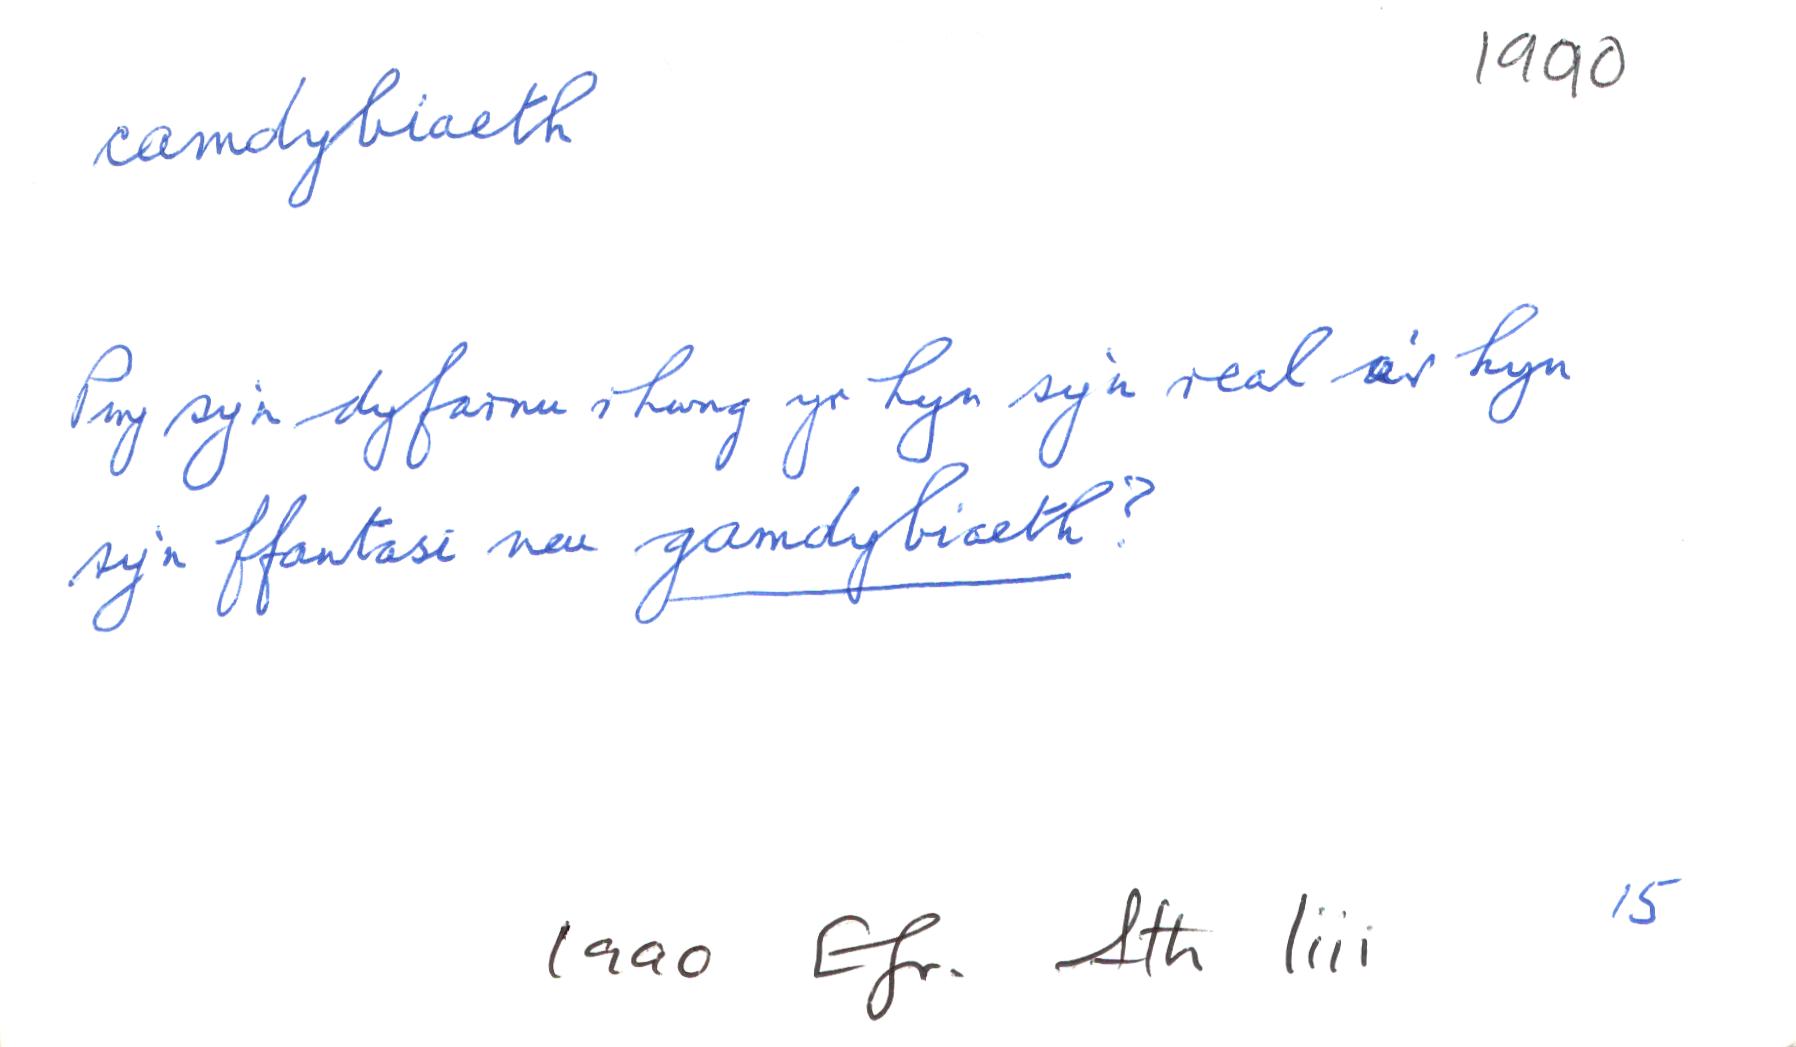 1990
camdybiaeth
Pwy sy'n dyfarnu rhwng yr hyn sy'n real a'r hyn
sy'n ffantasi neu gamdybiaeth?
15
1990 Efr. Ath liii